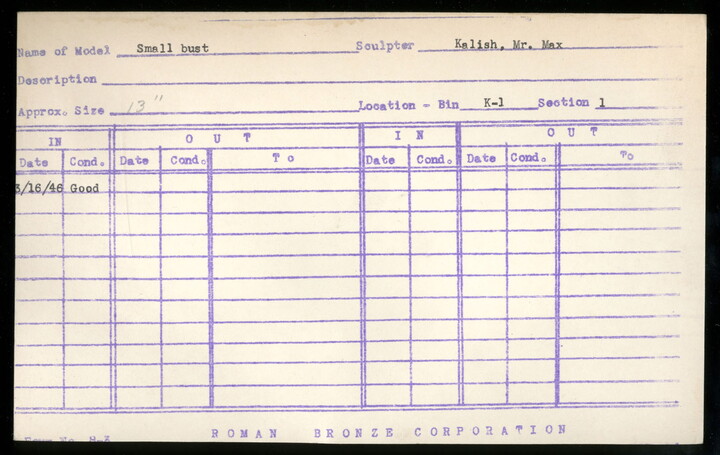 Name of Model Small bust Sculpter Kalish, Mr. Max
Description
Approx. Size 13" Location - Bin K-1 Section 1
IN OUT IN OUT
Date Cond. Date Cond. To Date Cond. Date Cond. To
3/16/46 Good
ROMAN BRONZE CORPORATION